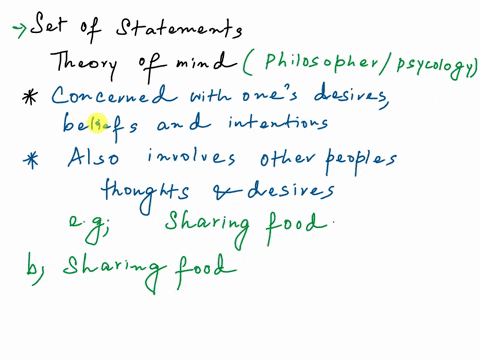 → Set of Statements
Theory of mind (Philosopher/psycology)
* Concerned with one's desires,
beliefs and intentions
* Also involves other peoples
thoughts & desires
e.g; Sharing food.
b, Sharing food